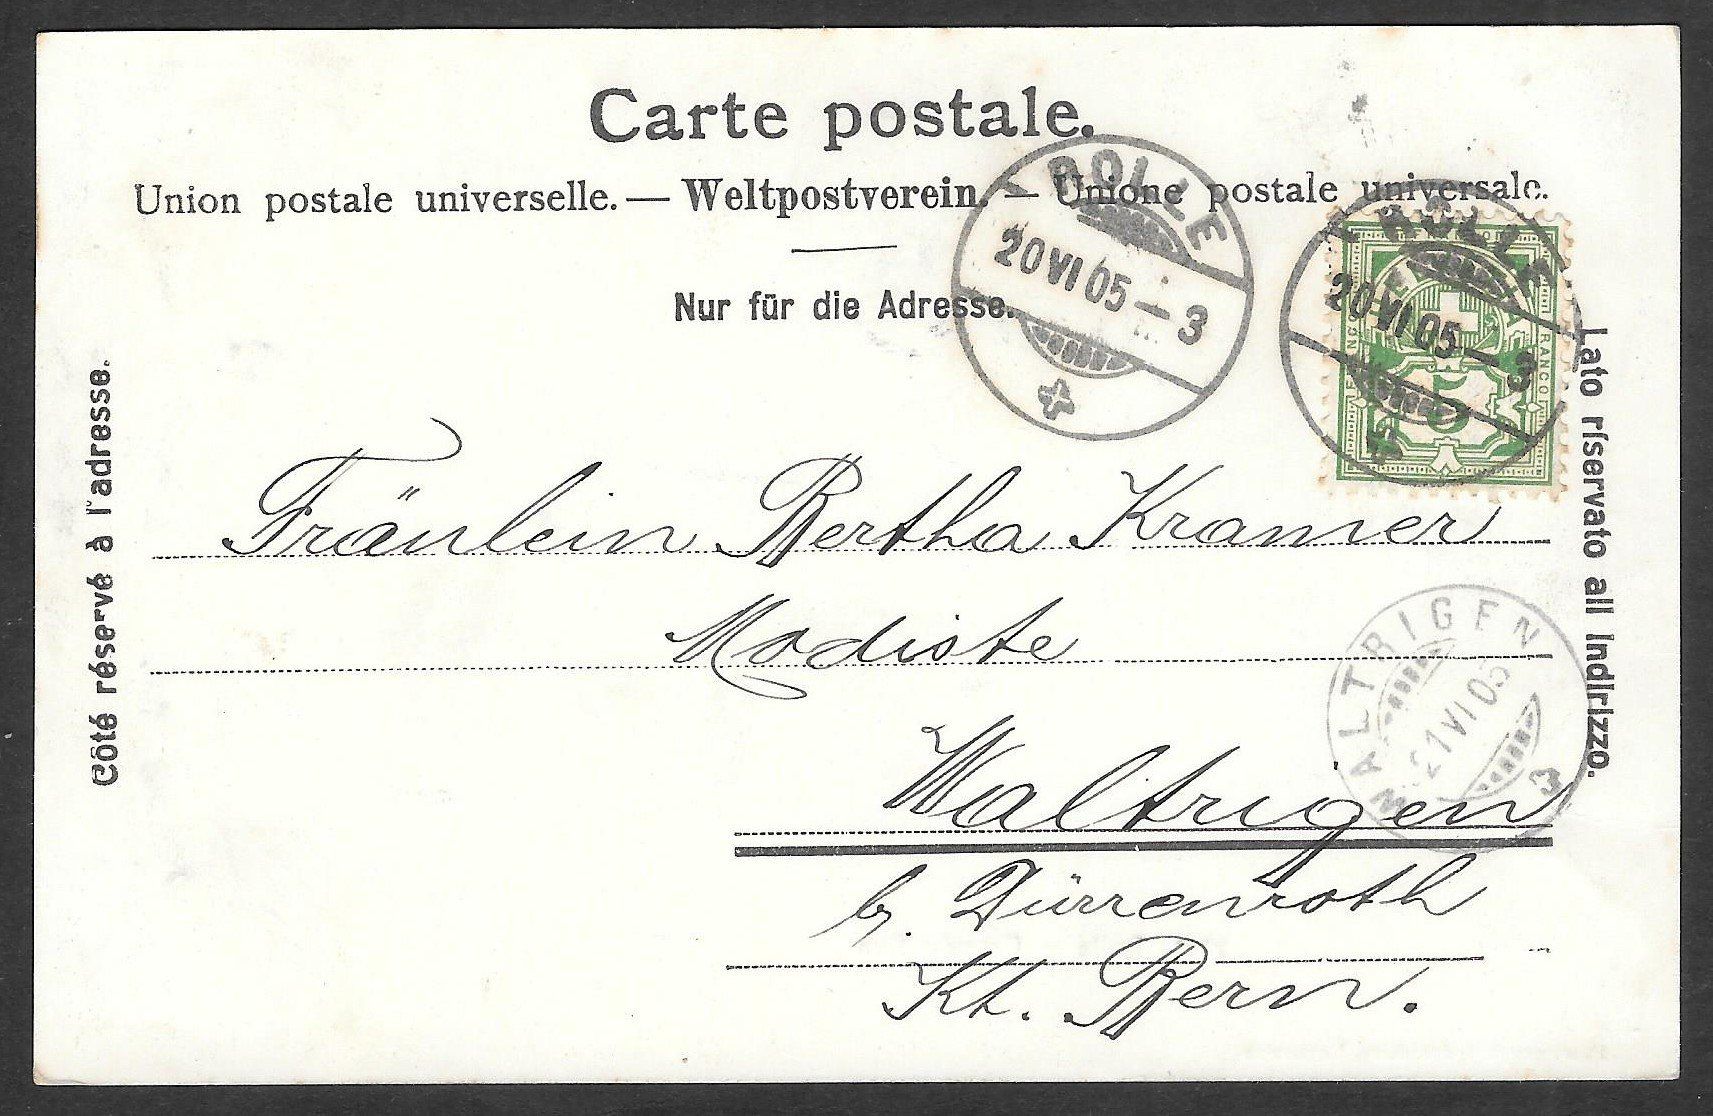 Carte postale.
Union postale universelle. — Weltpostverein. — Unione postale universale.
Nur für die Adresse.
Côté réservé à l'adresse.
Lato riservato all indirizzo.
ROLLE
20 VI 05 – 3
ROLLE
20 VI 05 – 3
FRANCO
5
Fräulein Bertha Kramer
Modiste
WALTRIGEN
21 VI 05
3
Waltrigen
b. Dürrenroth
Kt. Bern.